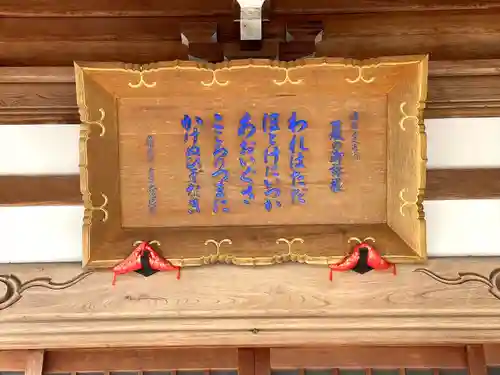 夏の御詠歌
われはただ
ほとけにいつか
あおいぐさ
こころのつまに
かけぬひぞなき